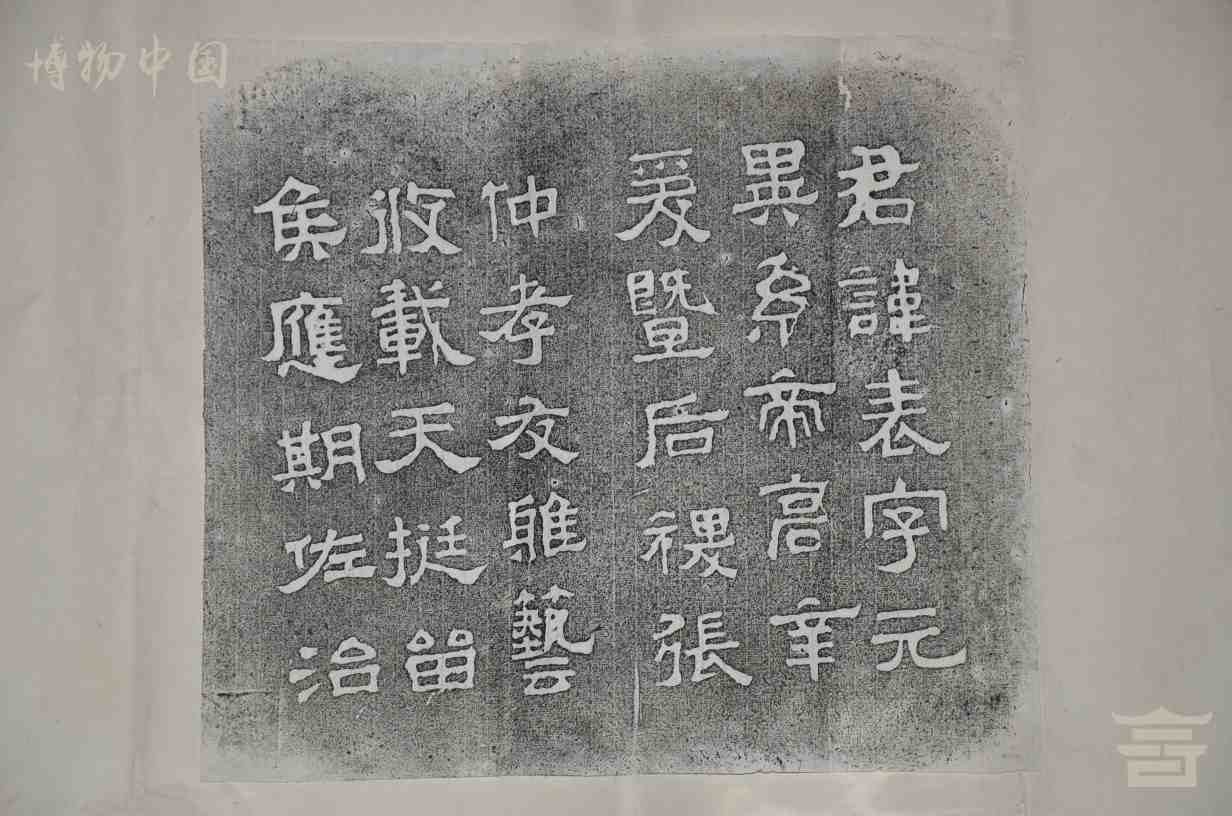 博物中国
君諱表字元
異系帝高辛
爰暨后稷張
仲孝友雅藝
攸載天挺留
侯應期佐治